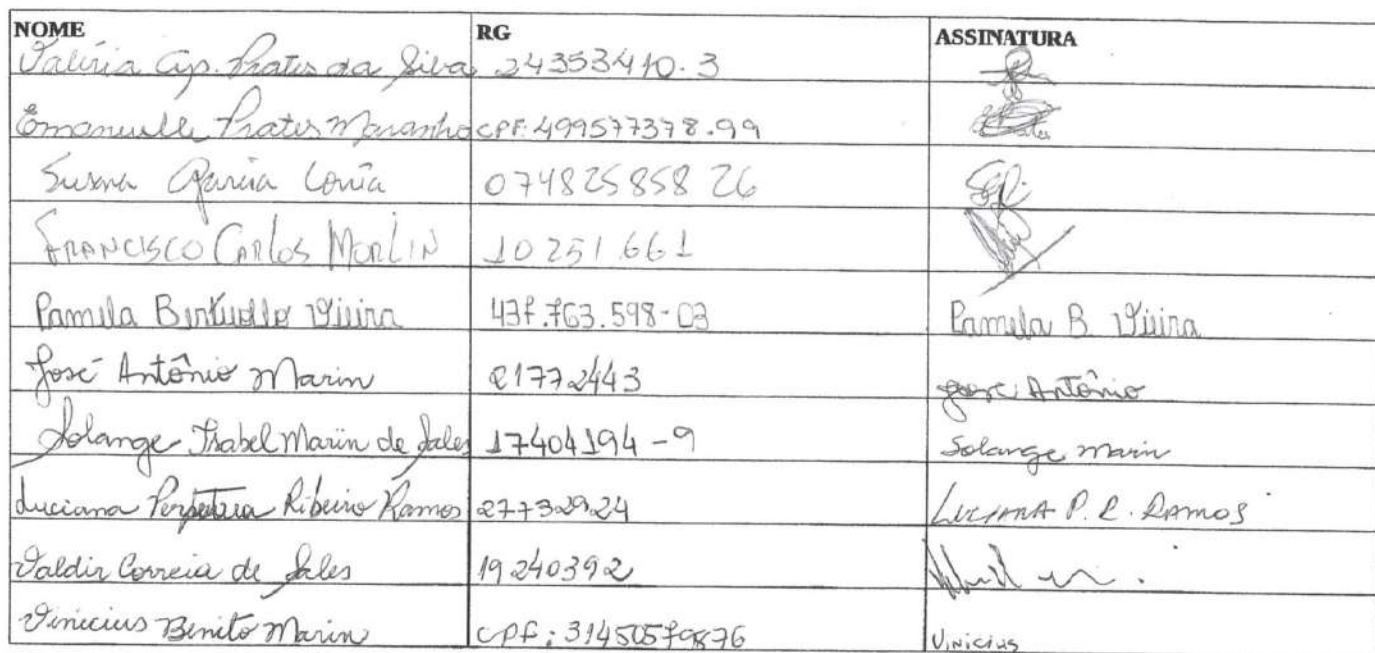 NOME RG ASSINATURA
Valéria Ap. Prates da Silva 24353410-3
Emanuelle Prates Maranho CPF: 499577378-99
Susana Garcia Corrêa 07482585826
FRANCISCO CARLOS MORLIN 10251661
Pamila Bertuollo Vieira 437.763.598-03 Pamela B. Vieira
José Antônio Marin 21772443 José Antônio
Solange Isabel Marin de Sales 17404194-9 Solange Marin
Luciana Perpetua Ribeiro Ramos 27732924 LUCIANA P. R. RAMOS
Valdir Correia de Sales 19240392
Vinicius Benito Marin CPF: 31450579876 VINICIUS